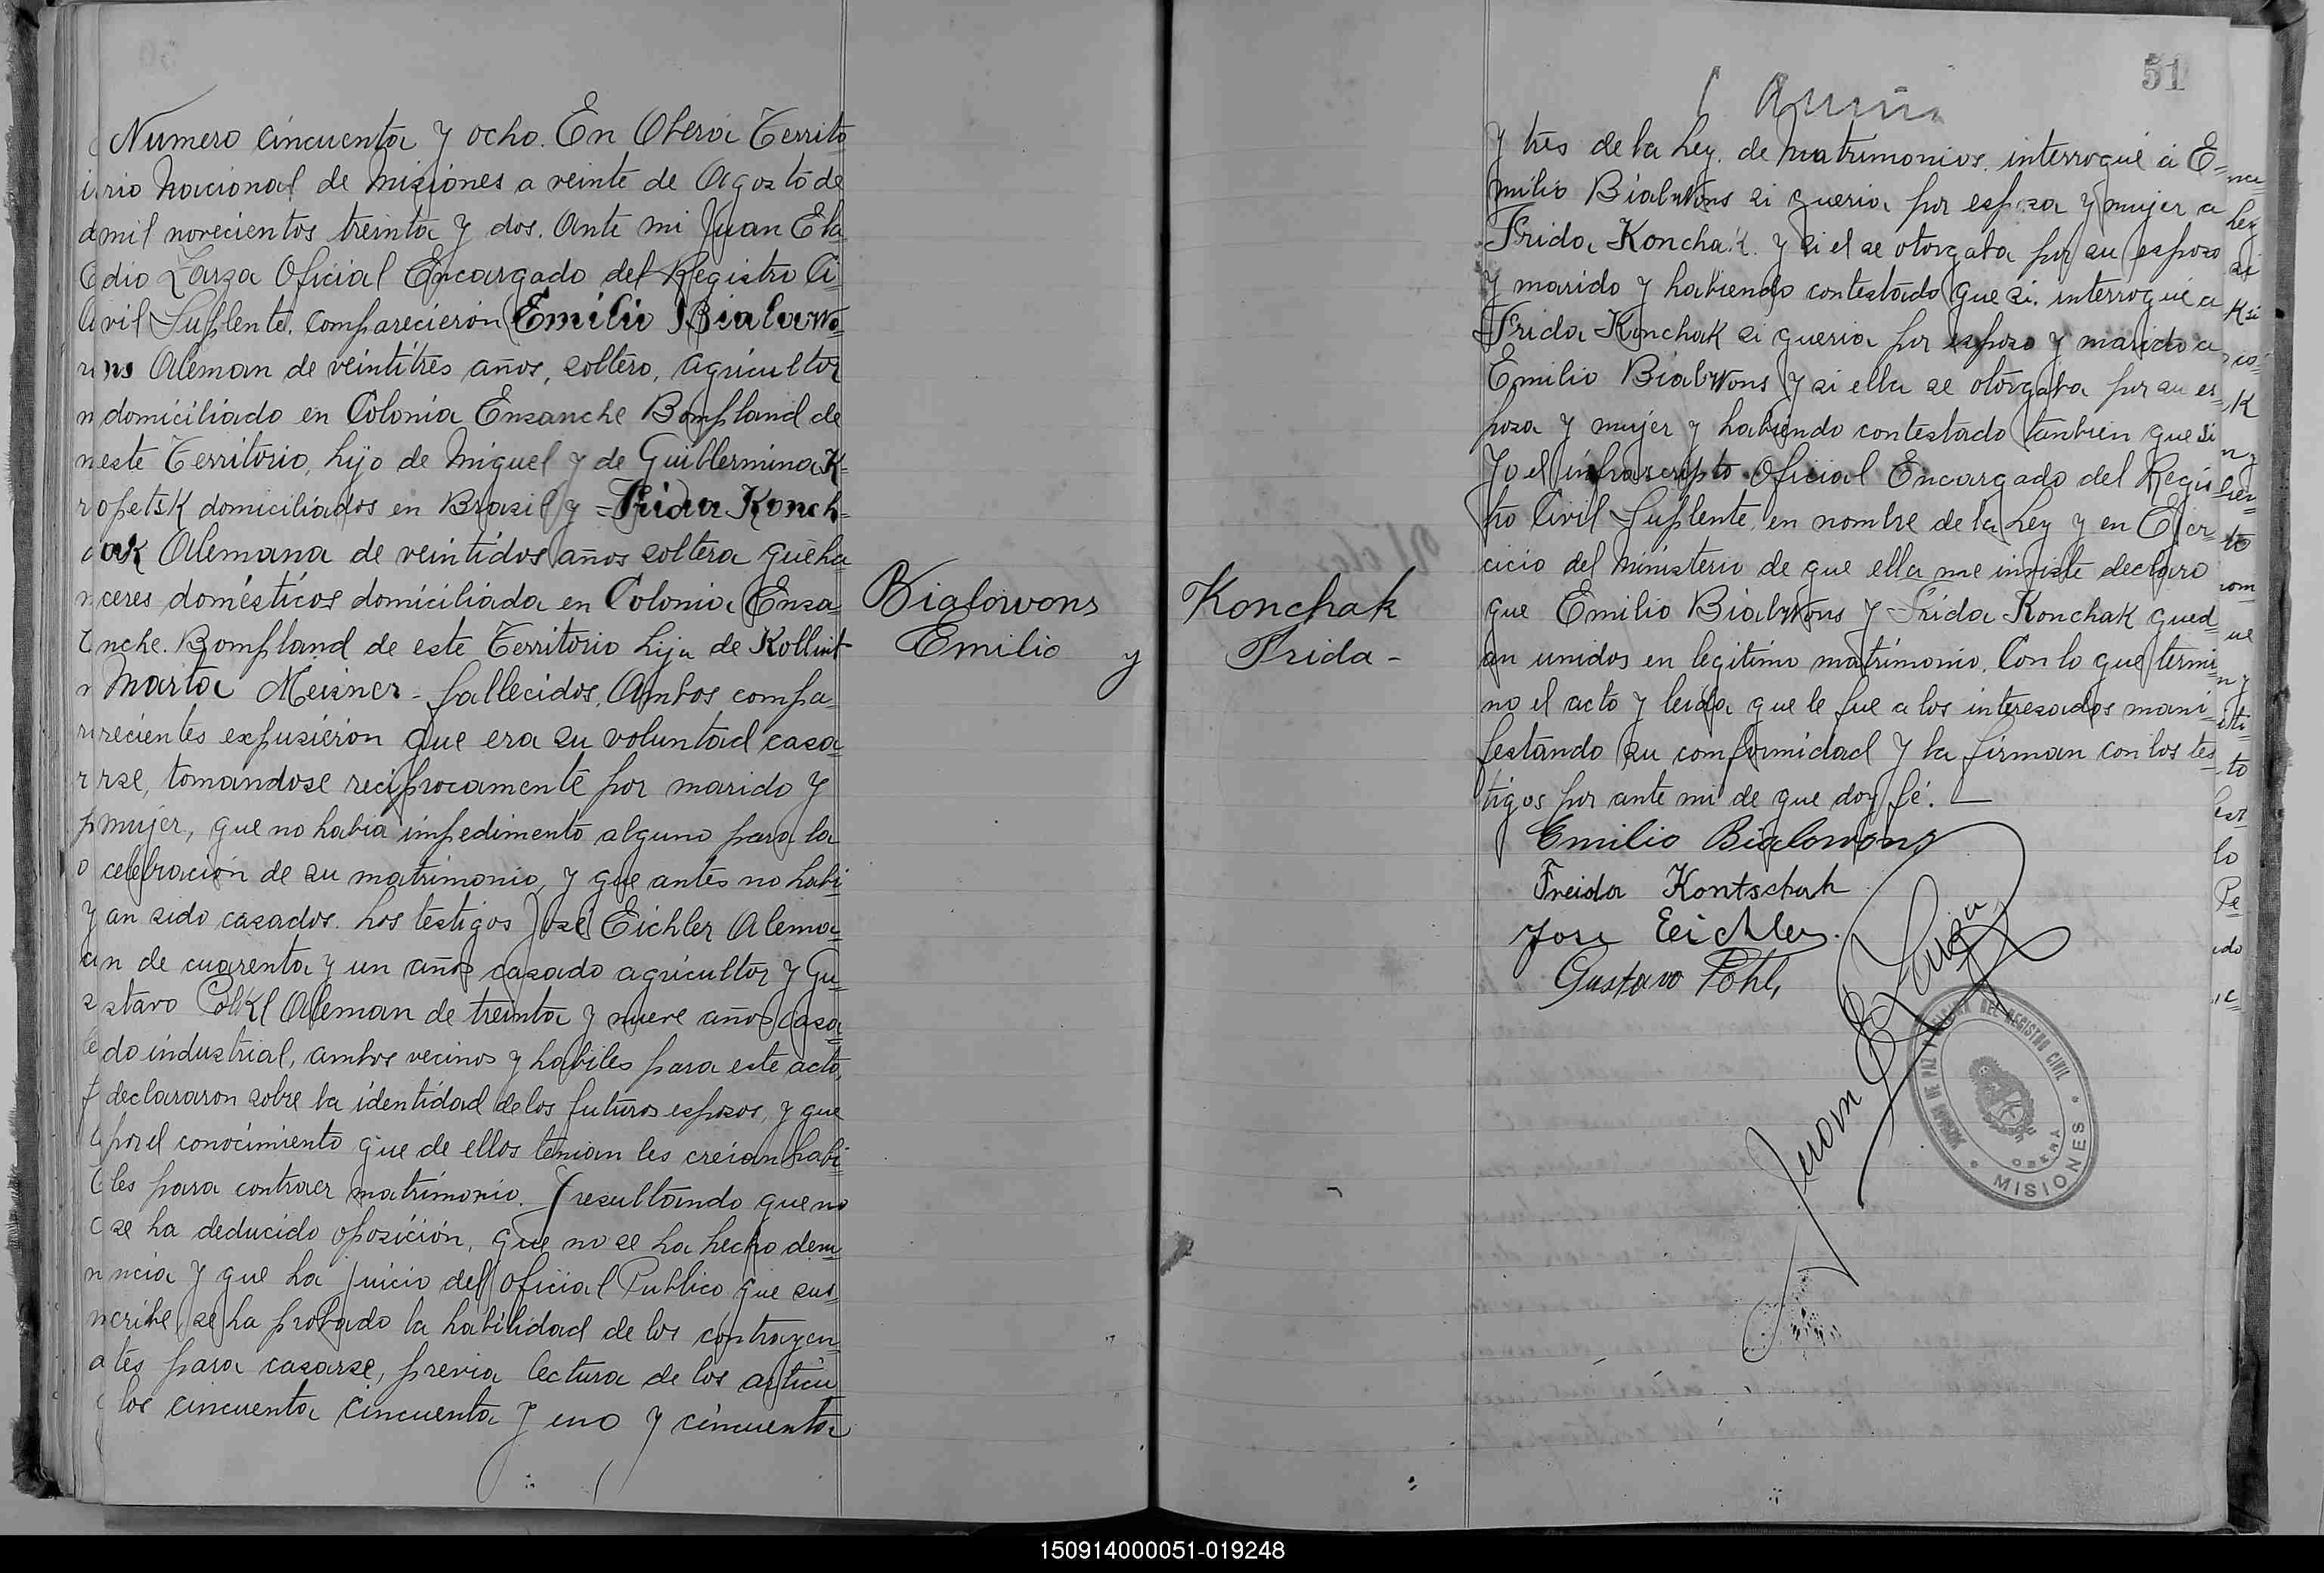 Numero cincuenta y ocho. En Oberá Territo
rio Nacional de Misiones a veinte de Agosto de
mil novecientos treinta y dos. Ante mi Juan Ela
dio Zarza Oficial Encargado del Registro Ci
vil Suplente, comparecieron Emilio Bialowo
ns Aleman de veintitrés años, soltero, agricultor
domiciliado en Colonia Ensanche Bompland de
este Territorio, hijo de Miguel y de Guillermina K-
opetsk domiciliados en Brasil y Frida Konch-
ak Alemana de veintidos años soltera queha
ceres domésticos domiciliada en Colonia Ensa
nche Bompland de este Territorio hija de
Marta Meisner - fallecidos. Ambos compa
recientes expusieron que era su voluntad casa
rse, tomandose reciprocamente por marido y
mujer, que no habia impedimento alguno para la
celebracion de su matrimonio, y que antes no habi
an sido casados. Los testigos José Eichler Alema
n de cuarenta y un años casado agricultor y Gu
stavo Aleman de treinta y nueve años casa
do industrial, ambos vecinos y habiles para este acto,
declararon sobre la identidad de los futuros esposos, y que
por el conocimiento que de ellos tenian les creian habi
les para contraer matrimonio. Y resultando que no
se ha deducido oposición, que no se ha hecho denu
ncia y que ha juicio del Oficial Publico que sus
cribe, se ha probado la habilidad de los contrayen
tes para casarse, previa lectura de los articu
los cincuenta cincuenta y uno y cincuenta
Bialowons
Emilio y
Konchak
Frida -
51
y tres de la Ley. de Matrimonios. interrogué á E-
milio Bialowons si queria por esposa y mujer a
Frida Konchak. y si el se otorgaba por su esposo
y marido y habiendo contestado que si. interrogué a
Frida Konchak si queria por esposo y marido a
Emilio Bialowons y si ella se otorgaba por su es-
posa y mujer y habiendo contestado tanbien que si
Yo el infrascripto Oficial Encargado del Regis
tro Civil Suplente, en nombre de la Ley y en Ejer-
cicio del Ministerio de que ella me inviste declaro
que Emilio Bialowons y Frida Konchak qued-
an unidos en legitimo matrimonio. Con lo que termi-
no el acto y leida que le fue a los interesados mani-
festando su conformidad y la firman con los tes
tigos por ante mi de que doy fé. —
Emilio Bialowons
Freida Kontschak
Jose Eeichler.
Gustavo Pohl,
Juan E. Zarza
JUZGADO DE PAZ Y OFICINA DEL REGISTRO CIVIL
OBERÁ
• MISIONES •
150914000051-019248